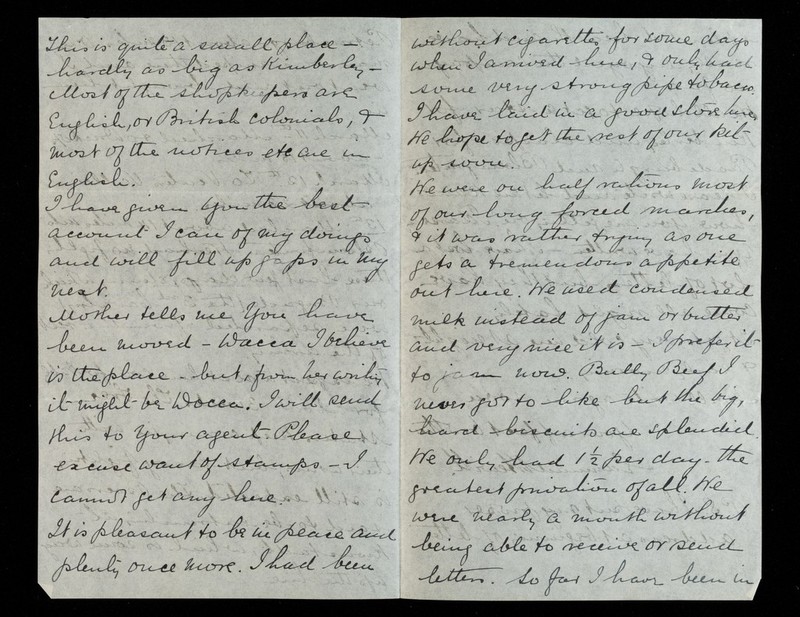 This is quite a small place –
hardly as big as Kimberley –
Most of the shopkeepers are
English, or British colonials, &
most of the notices etc are in
English.
I have given you the best
account I can of my doings
and will fill up gaps in my
next.
Mother tells me you have
been moved – Wacca I believe
is the place – but, from her writing
it might be Docca. I will send
this to your agent. Please
excuse want of stamps – I
cannot get any here.
It is pleasant to be in peace and
plenty once more. I had been
without cigarettes for some days
when I arrived here, & only had
some very strong pipe tobacco.
I have laid in a good store here.
We hope to get the rest of our kit
up soon.
We were on half rations most
of our long forced marches,
& it was rather trying as one
gets a tremendous appetite
out here. We used condensed
milk instead of jam or butter
and very nice it is – I prefer it
to jam now. Bully Beef I
never got to like but the big,
hard biscuits are splendid.
We only had 1½ per day – the
greatest privation of all. We
were nearly a month without
being able to receive or send
letters. So far I have been in